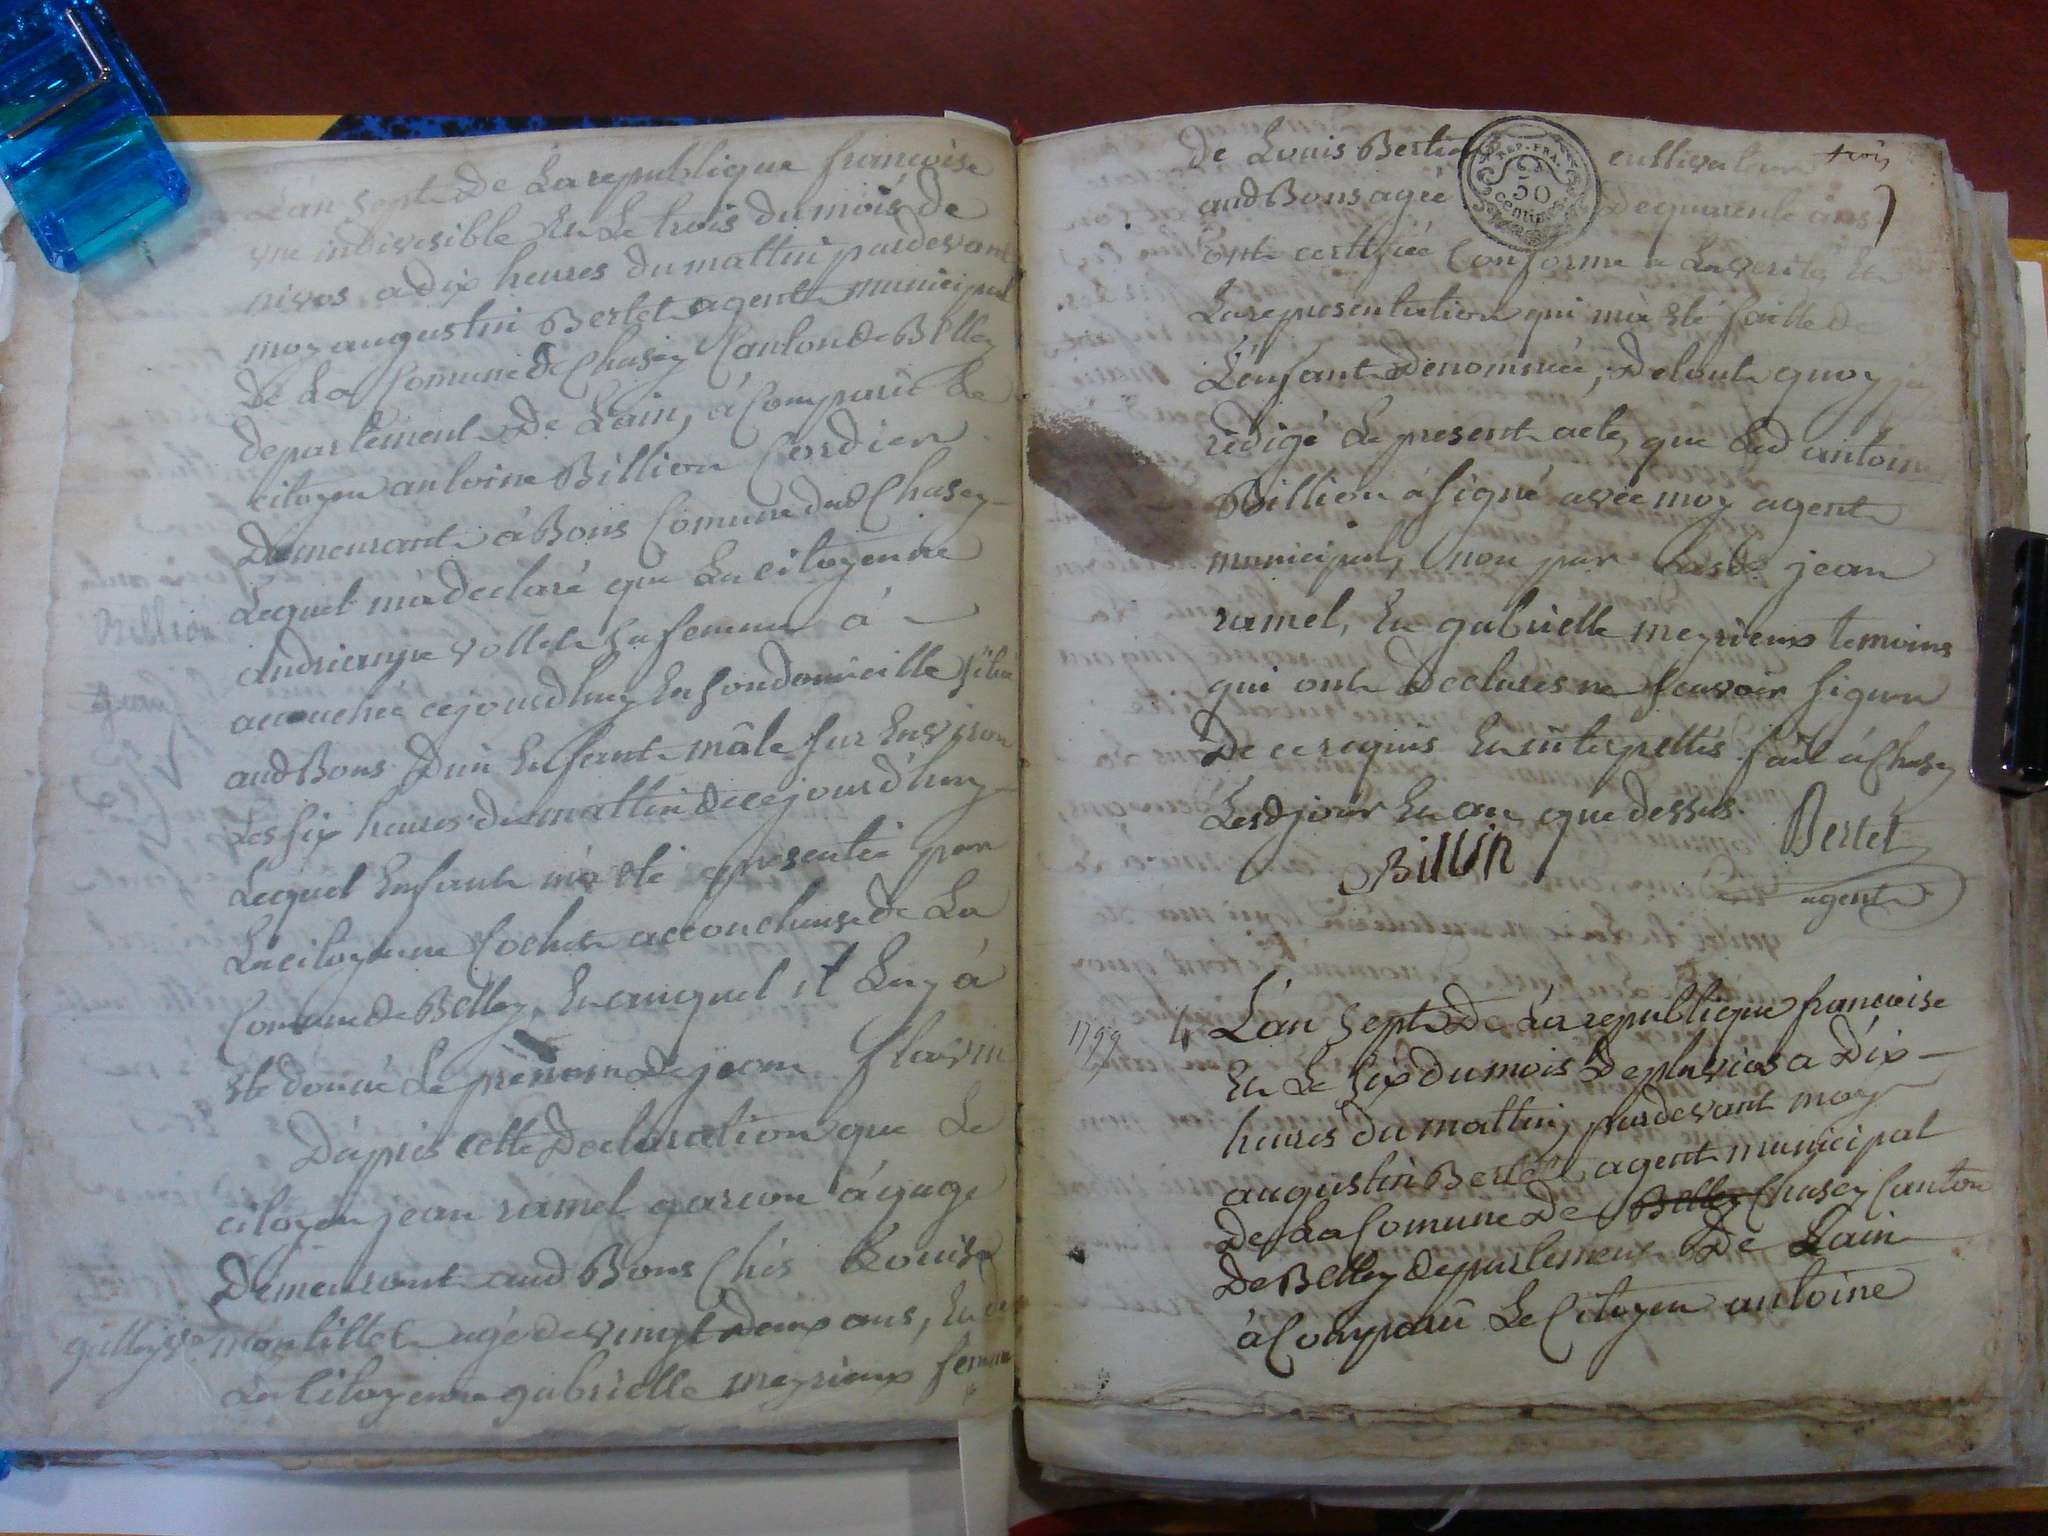 Lan sept De La republique francoise
vne indivisible Et Le trois du mois de
nivos a dix heures du mattin pardevant
moy augustin Bertet agent municipal
De La Comune de Chasey Canton de Belley
departement De Lain, à Comparu Le
citoyen antoine Billion Cordier
Demeurant à Bons Comune dud Chasey
Lequel mà declaré que La citoyenne
andrienne vollet sa femme à
accouchée cejourdhuy En son domicille situé
aud Bons Dun Enfant mâle sur Environ
Les six heures du mattin de cejourdhuy
Lequel Enfant mà été presentée par
La citoyenne Cochet accoucheuse de La
Comune de Belley, Et auquel il Luy à
été donné Le prenom de jean flavin
Dàprès cette Declaration que Le
citoyen jean ramel garcon à gage
Demeurant aud Bons Chés Louise
montillet agé de vingt deux ans, Et de
La Citoyenne gabrielle meyrieux femme
Billion
de Louis Bertet cultivateur
trois
REP. FRA.
50
centimes
aud Bons agée De quarente ans
ont certifiée Conforme a La verité Et
La representation qui mà été faitte de
Lenfant Denommée; De tout quoy jai
redigé Le present acte, que Led antoine
Billion à signé avec moy agent
municipal, non par Lesd. jean
ramel, Et gabrielle meyrieux temoins
qui ont Declarés ne scavoir signer
De ce requis Et interpellés fait à Chasey
Lesd jour Et an que dessus.
Billin
Bertet
agent
1799
4 Làn sept De La republique francoise
Et Le six du mois De pluvios a Dix
heures du mattin, pardevant moy
augustin Bertet agent municipal
De La Comune De Belley Chasey Canton
De Belley departement De Lain
à Comparu Le Citoyen antoine